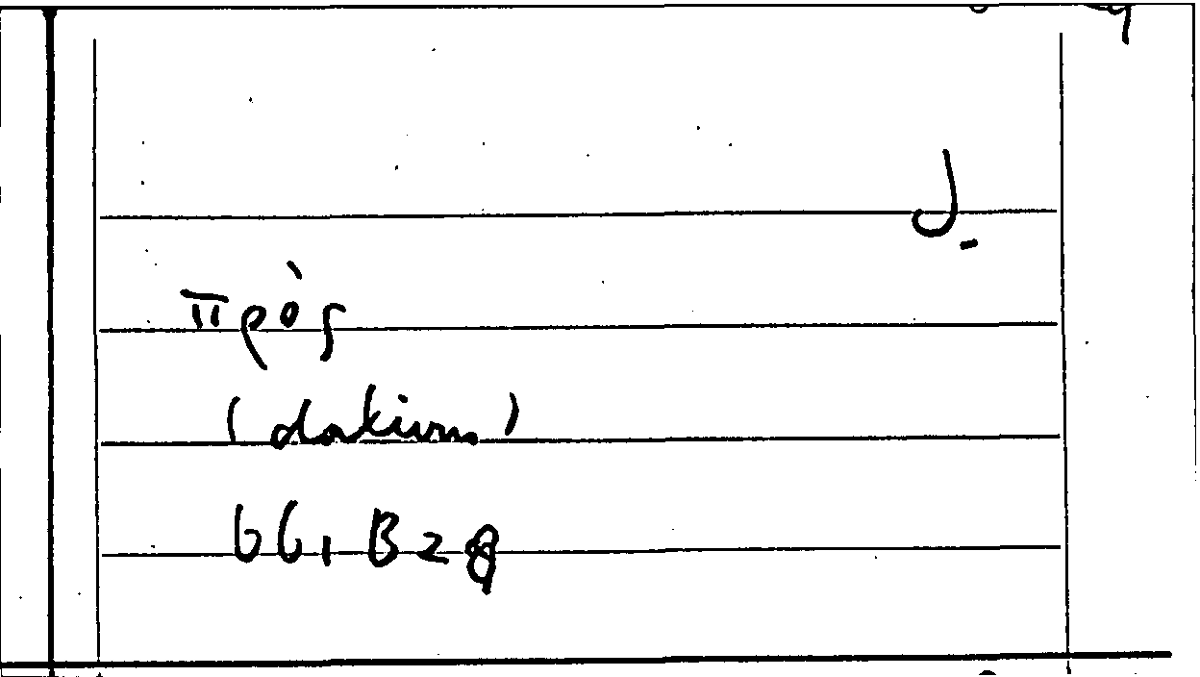 J.
πρὸς
(dativum)
661 B 28